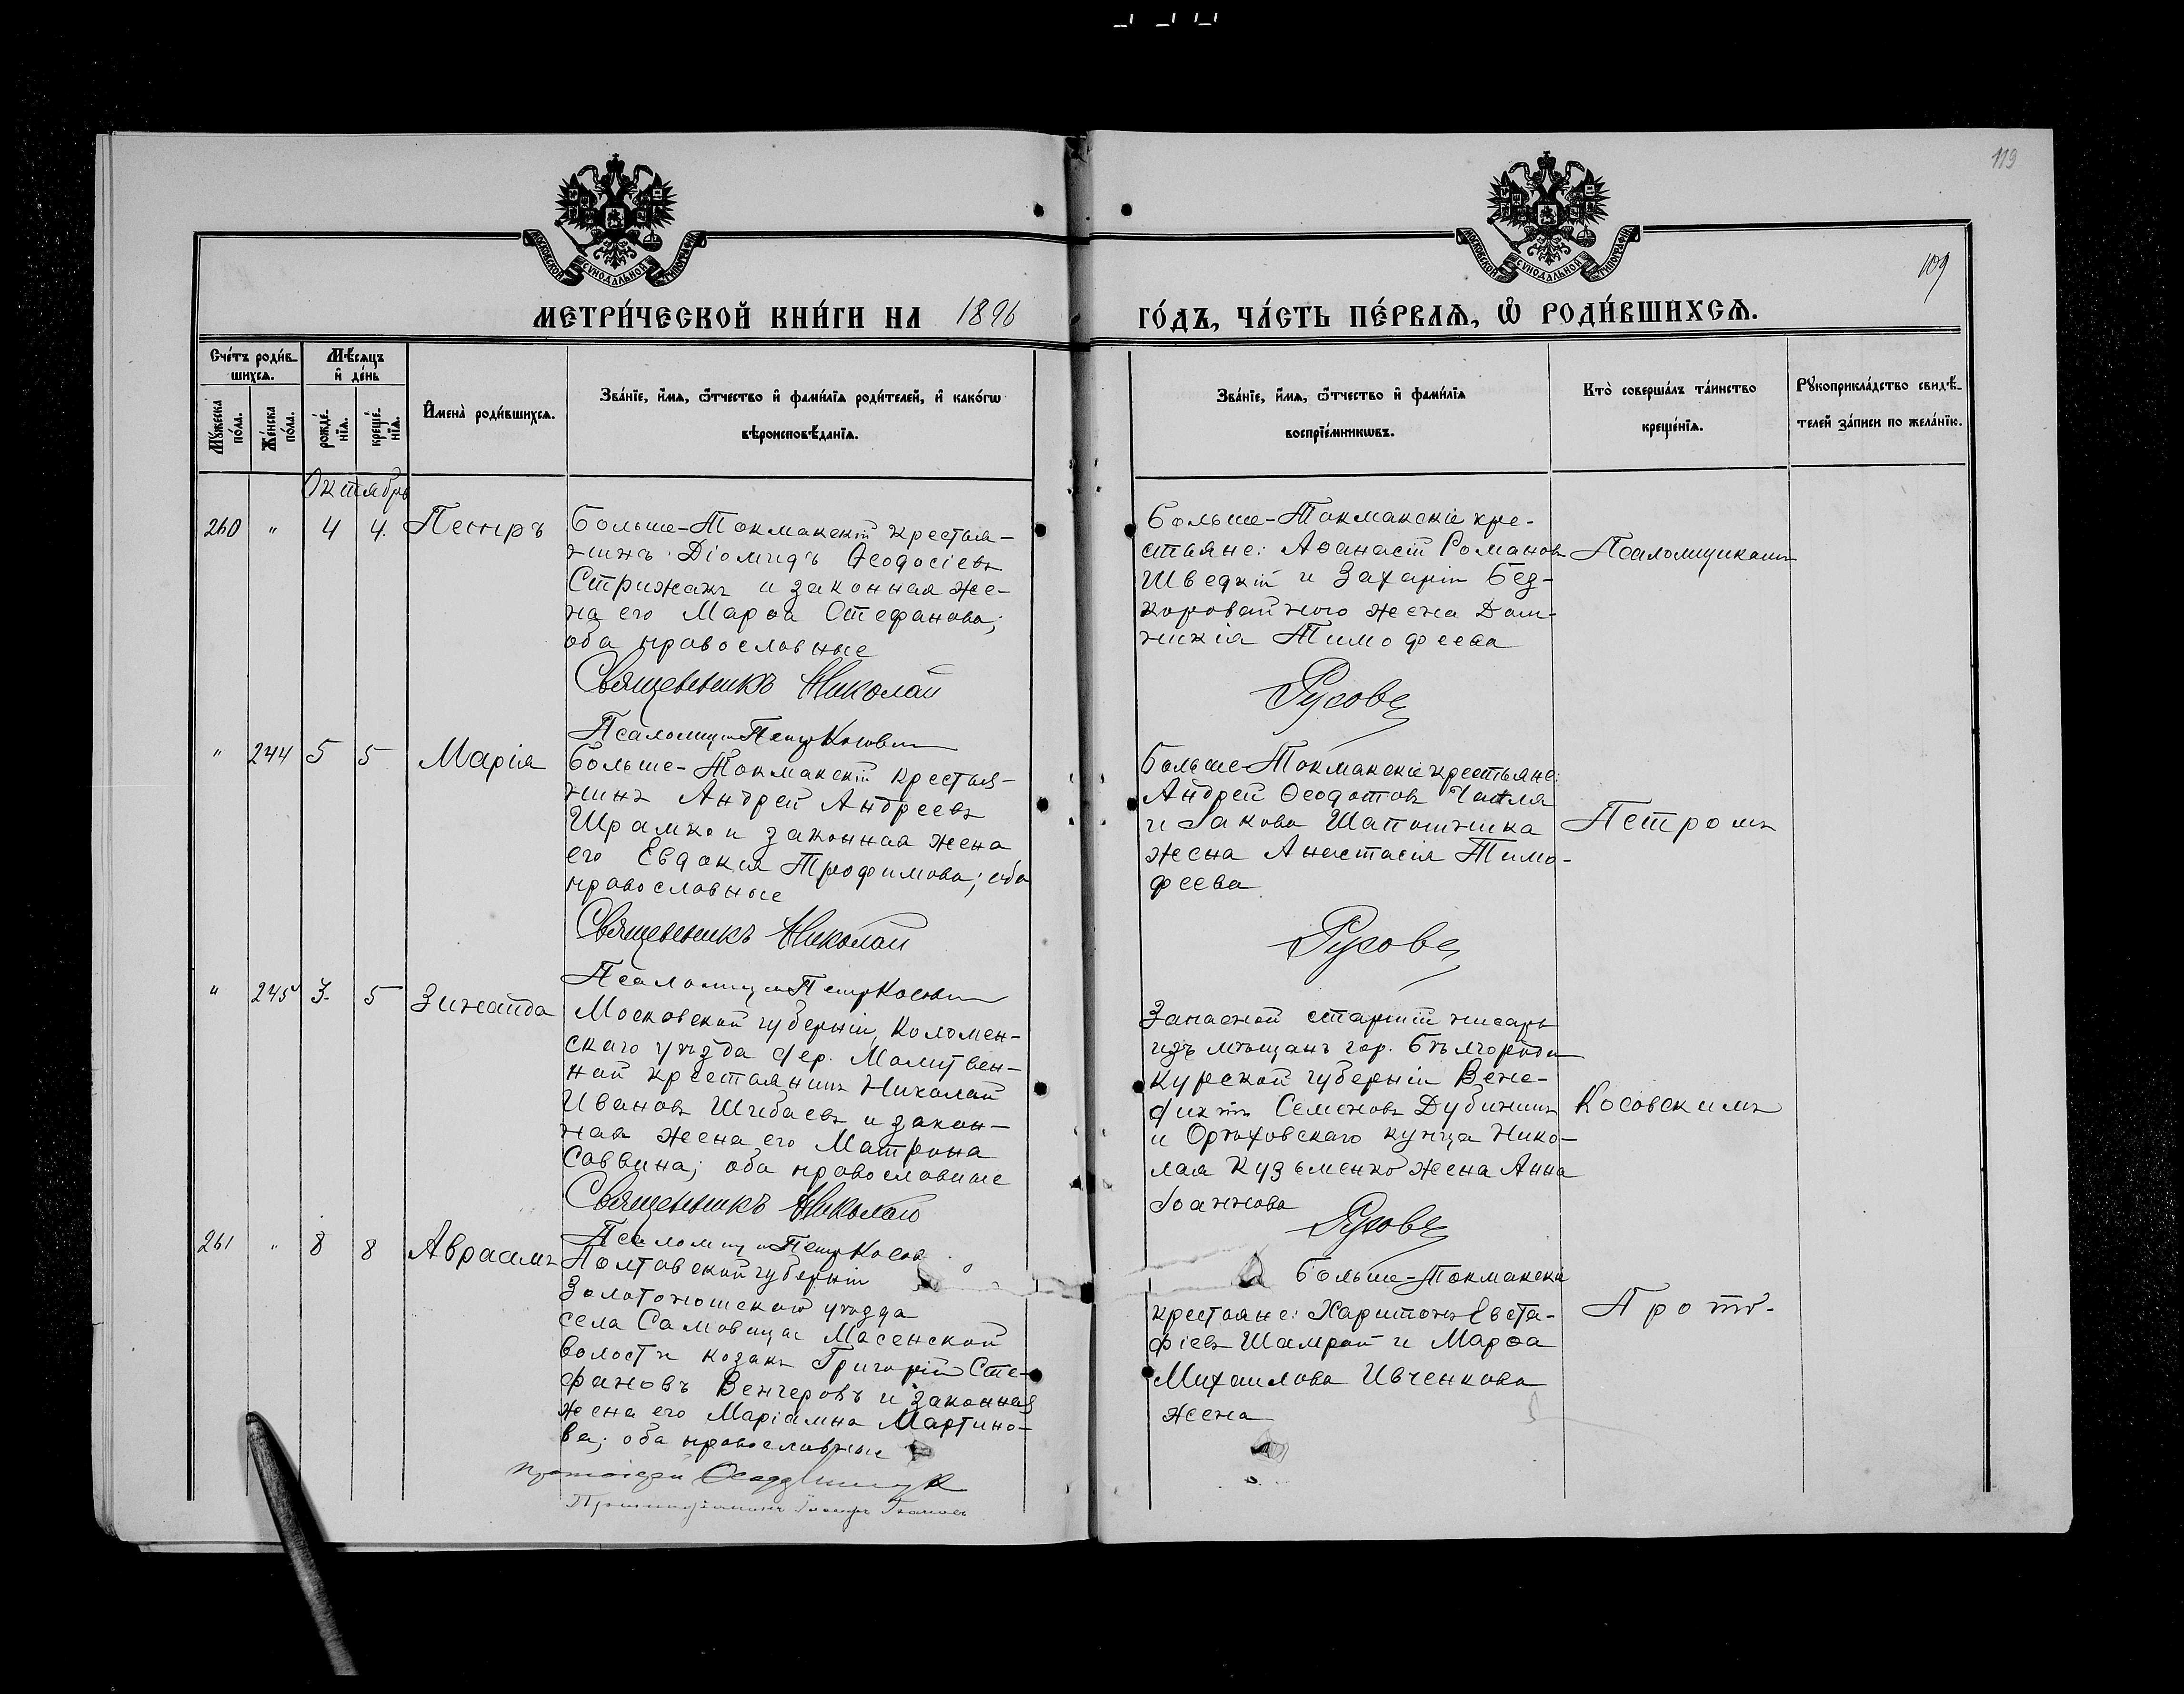 119
109
МОСКОВСКОЙ СѴНОДАЛЬНОЙ ТИПОГРАФІИ
МОСКОВСКОЙ СѴНОДАЛЬНОЙ ТИПОГРАФІИ
МЕТРИ́ЧЕСКОЙ КНИ́ГИ НА 1896 ГО́ДЪ, ЧА́СТЬ ПЕ́РВАѦ, Ѡ҆ РОДИ́ВШИХСѦ.
Сче́тъ роди́в-
шихсѧ.
Мꙋ́жеска по́ла.
Же́нска по́ла.
Мѣ́сѧцъ
и҆ де́нь
рожде́-
нїѧ.
креще́-
нїѧ.
И҆мена̀ роди́вшихсѧ.
Зва́нїе, и҆́мѧ, ѻ҆́тчество и҆ фами́лїѧ роди́телей, и҆ како́гѡ
вѣроисповѣ́данїѧ.
Зва́нїе, и҆́мѧ, ѻ҆́тчество и҆ фами́лїѧ
воспрїе́мникѡвъ.
Кто̀ соверша́лъ та́инство
креще́нїѧ.
Рꙋкоприкла́дство свидѣ́-
телей за́писи по жела́нїю.
Октябрь
260 " 4 4. Петръ
Больше-Токмакскій крестья-
нинъ Діомидъ Ѳеодосіевъ
Стрижакъ и законная же-
на его Марѳа Стефанова;
оба православные
Священникъ Николай Русовъ
Псаломщ Петръ Косовск
Больше-Токмакскіе кре-
стьяне: Аѳанасій Романовъ
Шведкій и Захарія Без-
коровайного жена Дом-
никія Тимофеева
Псаломщикомъ
" 244 5 5 Марія
Больше-Токмакскій крестья-
нинъ Андрей Андреевъ
Шрамко и законная жена
его Евдокія Трофимова; оба
православные
Священникъ Николай Русовъ
Псаломщ Петръ Косовск
Больше-Токмакскіе крестьяне:
Андрей Ѳеодотовъ Чапля
и Іакова Шапошника
жена Анастасія Тимо-
феева
Петромъ
" 245 3. 5 Зинаида
Московской губерніи, Коломен-
скаго уѣзда дер. Молитвен-
ной крестьянинъ Николай
Ивановъ Шибаевъ и закон-
ная жена его Матрона
Саввина; оба православные
Священникъ Николай Русовъ
Псаломщ Петръ Косов
Запасной старшій писарь
изъ мѣщанъ гор. Бѣлгорода
Курской губерніи Вене-
диктъ Семеновъ Дубининъ
и Орѣховскаго купца Нико-
лая Кузьменко жена Анна
Іоаннова
Косовскимъ
261 " 8 8 Авраамъ
Полтавской губерніи
Золотоношскаго уѣзда
села Самовица Масенской
волости козакъ Григорій Сте-
фановъ Венгеровъ и законная
жена его Маріамна Мартино-
ва; оба православные
Больше-Токмакскіе
крестьяне: Харитонъ Евста-
фіевъ Шамрай и Марѳа
Михаилова Ивченкова
жена
Прото-
Протоіерей